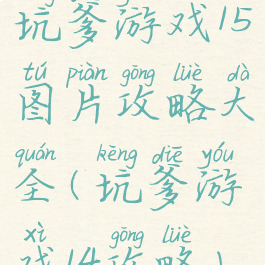 坑爹游戏15
tú piàn gōng lüè dà
图片攻略大
quán kēng diē yóu
全(坑爹游
xì gōng lüè
戏14攻略)